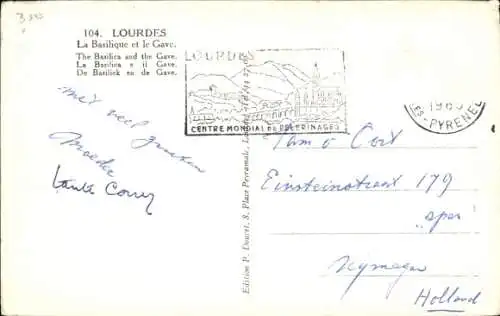 104. LOURDES
La Basilique et le Gave.
The Basilica and the Gave.
La Basilica e il Gave.
De Basiliek en de Gave.
LOURDES
CENTRE MONDIAL DE PÈLERINAGES
ES-PYRENEES
met veel groeten
Moeder
tante Corry
Edition P. Doucet, 8, Place Peyramale, Lourdes
Fam v
Einsteinstraat 179
Nijmegen
Holland